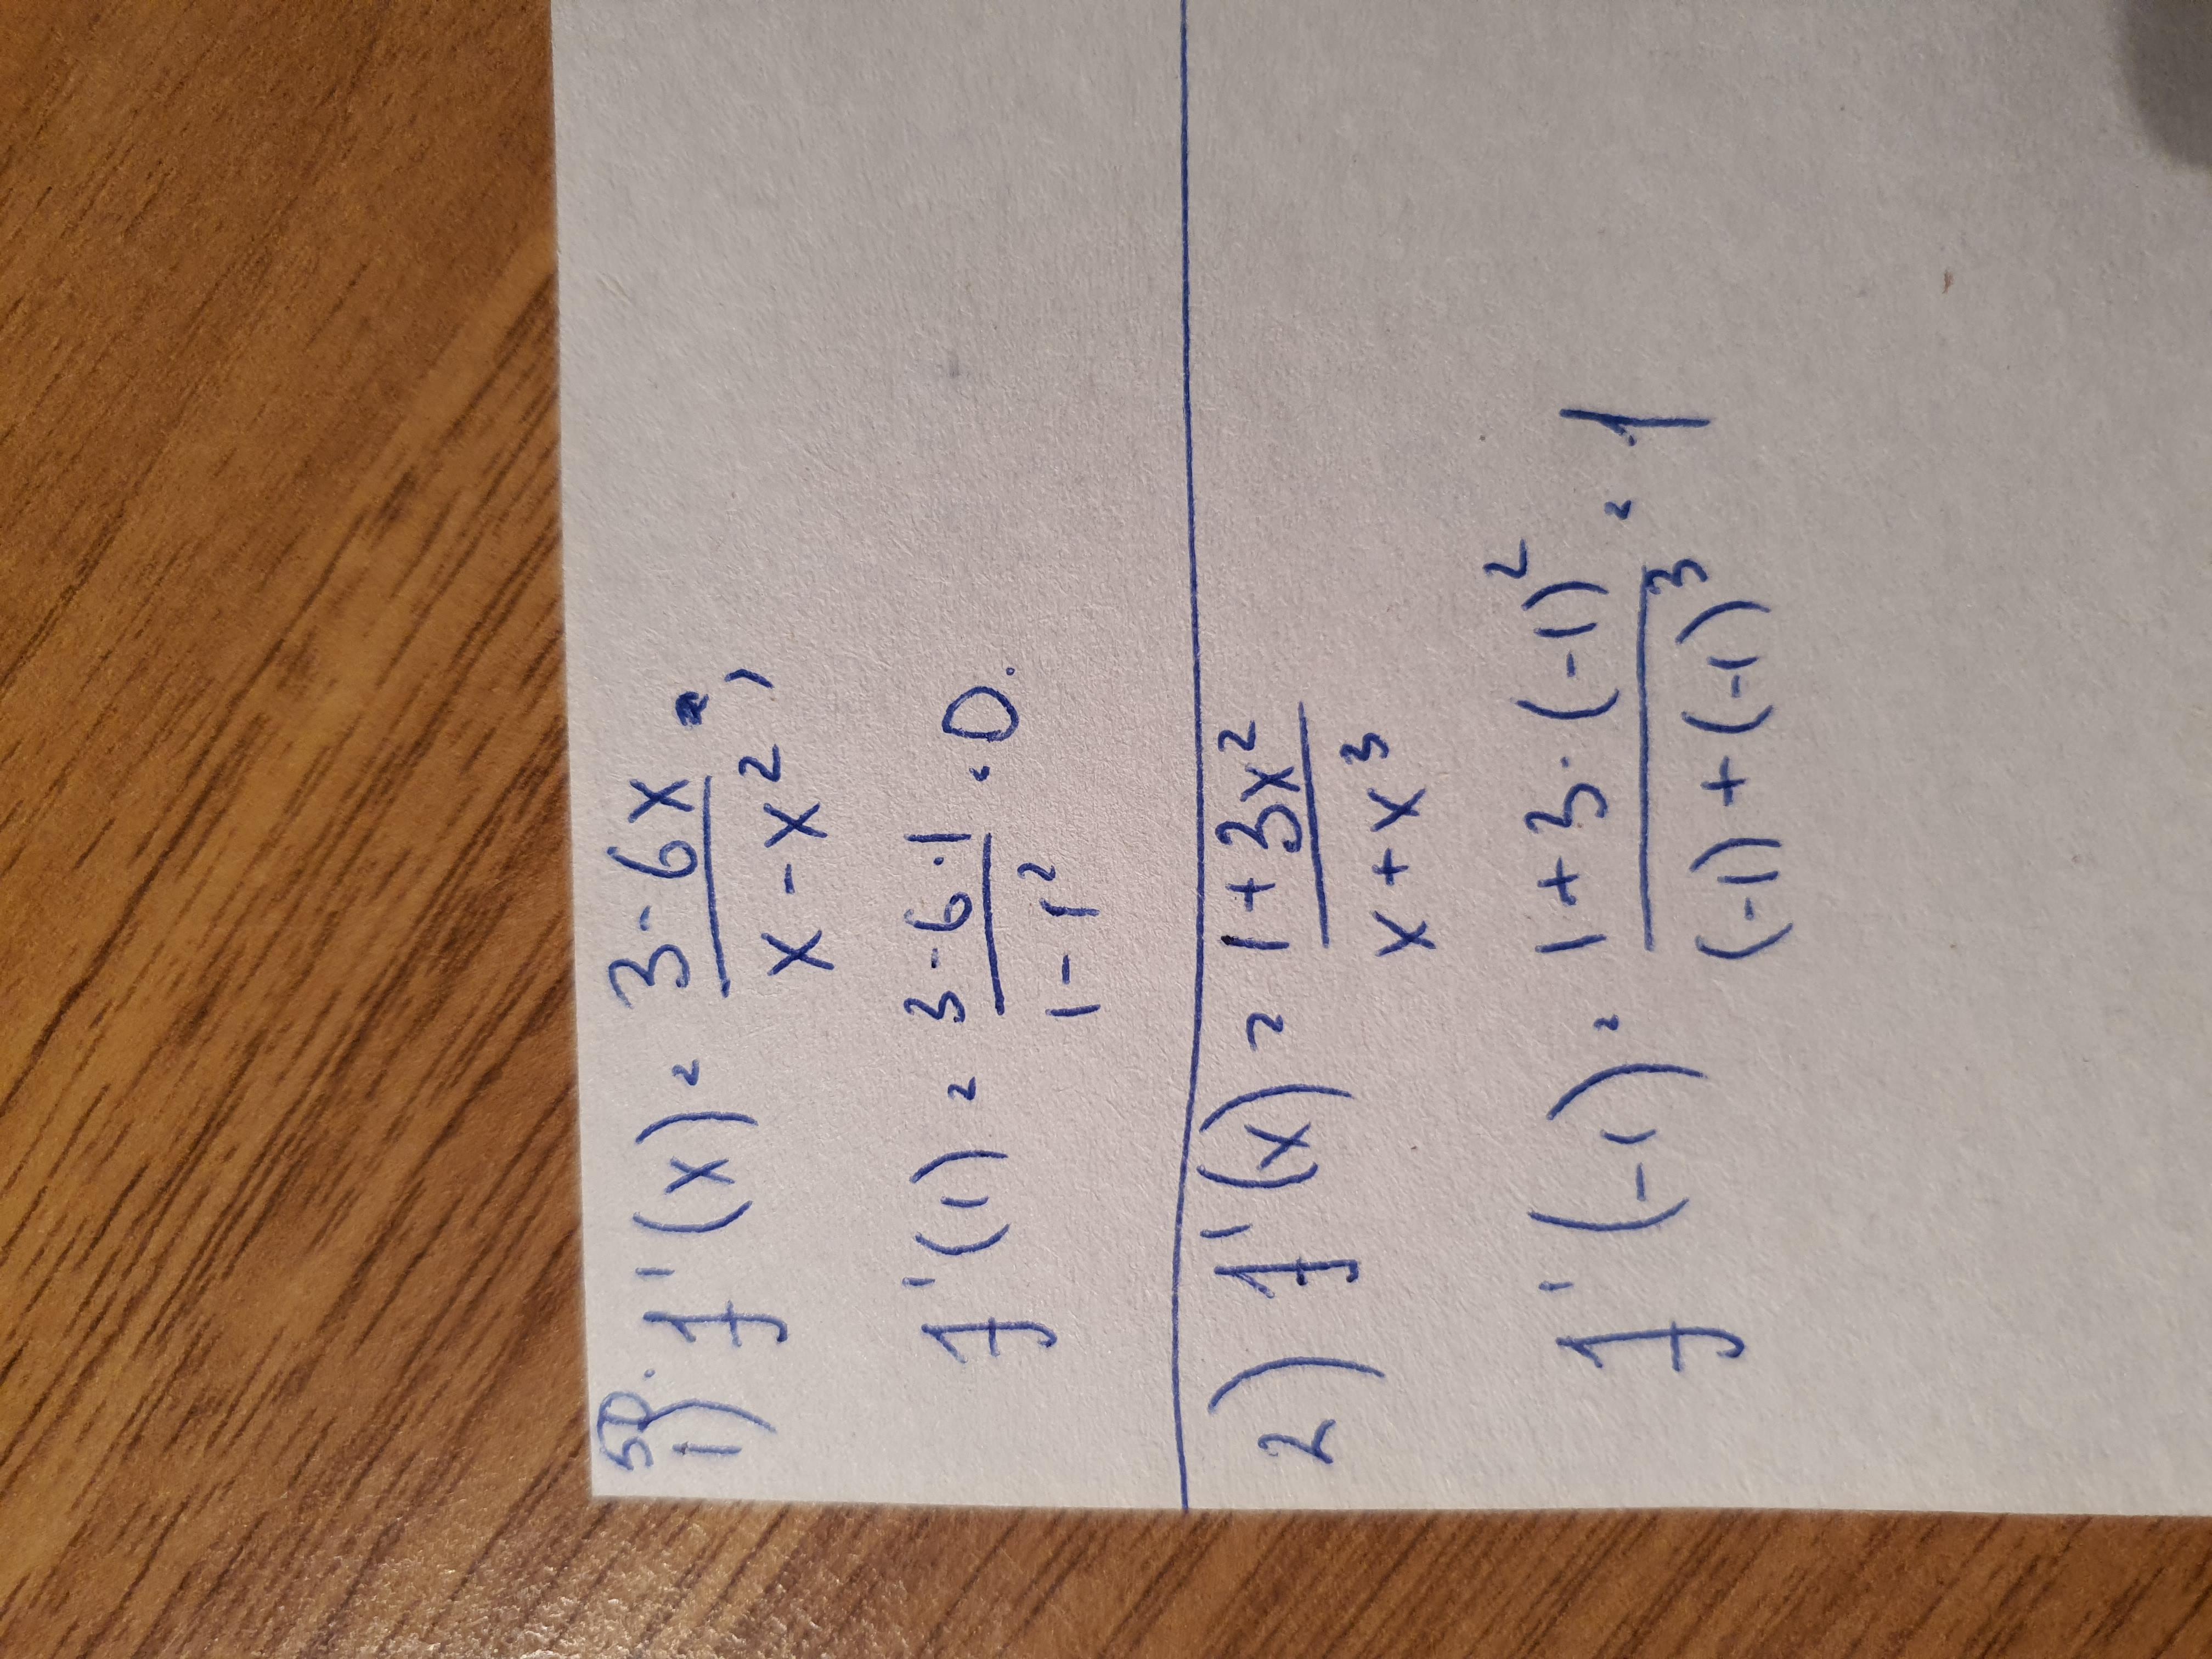 50.
1) f'(x) = 3 - 6x / x - x²,
f'(1) = 3 - 6·1 / 1 - 1² · 0.
2) f'(x) = 1 + 3x² / x + x³
f'(-1) = 1 + 3·(-1)² / (-1) + (-1)³ = · 1